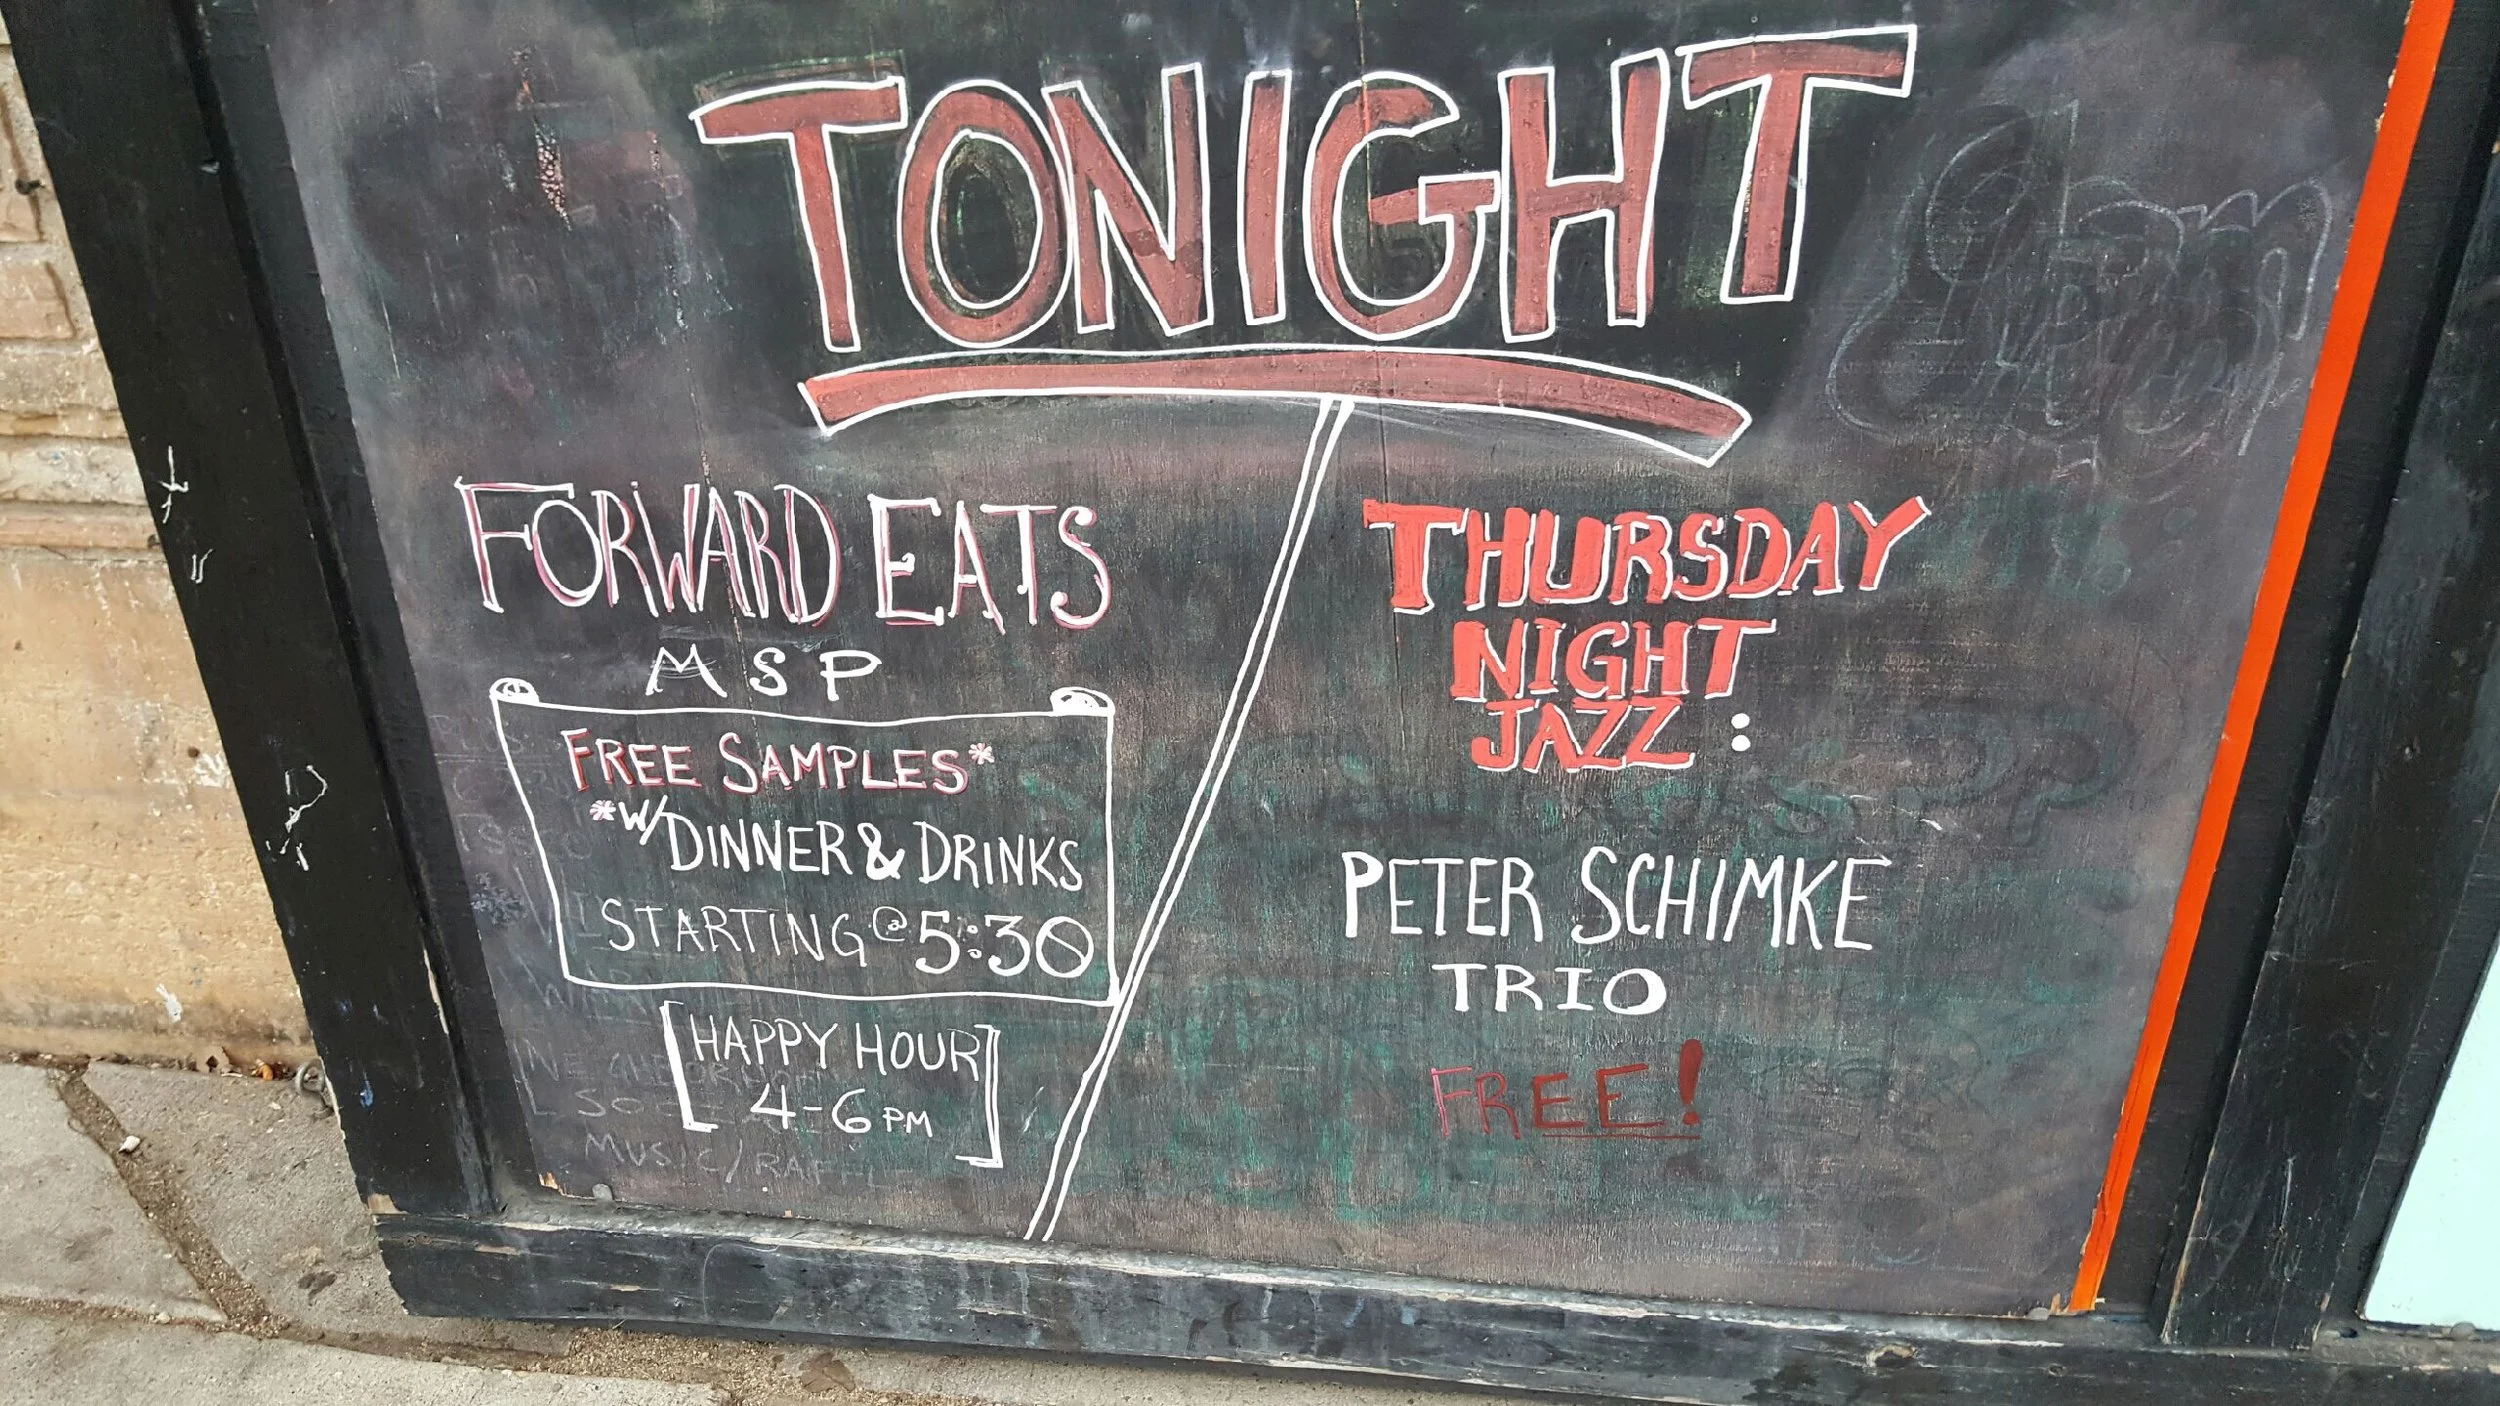 TONIGHT
FORWARD EATS
MSP
FREE SAMPLES*
*W/DINNER & DRINKS
STARTING @ 5:30
[HAPPY HOUR
4-6PM]
THURSDAY
NIGHT
JAZZ:
PETER SCHIMKE
TRIO
FREE!
MUSIC/